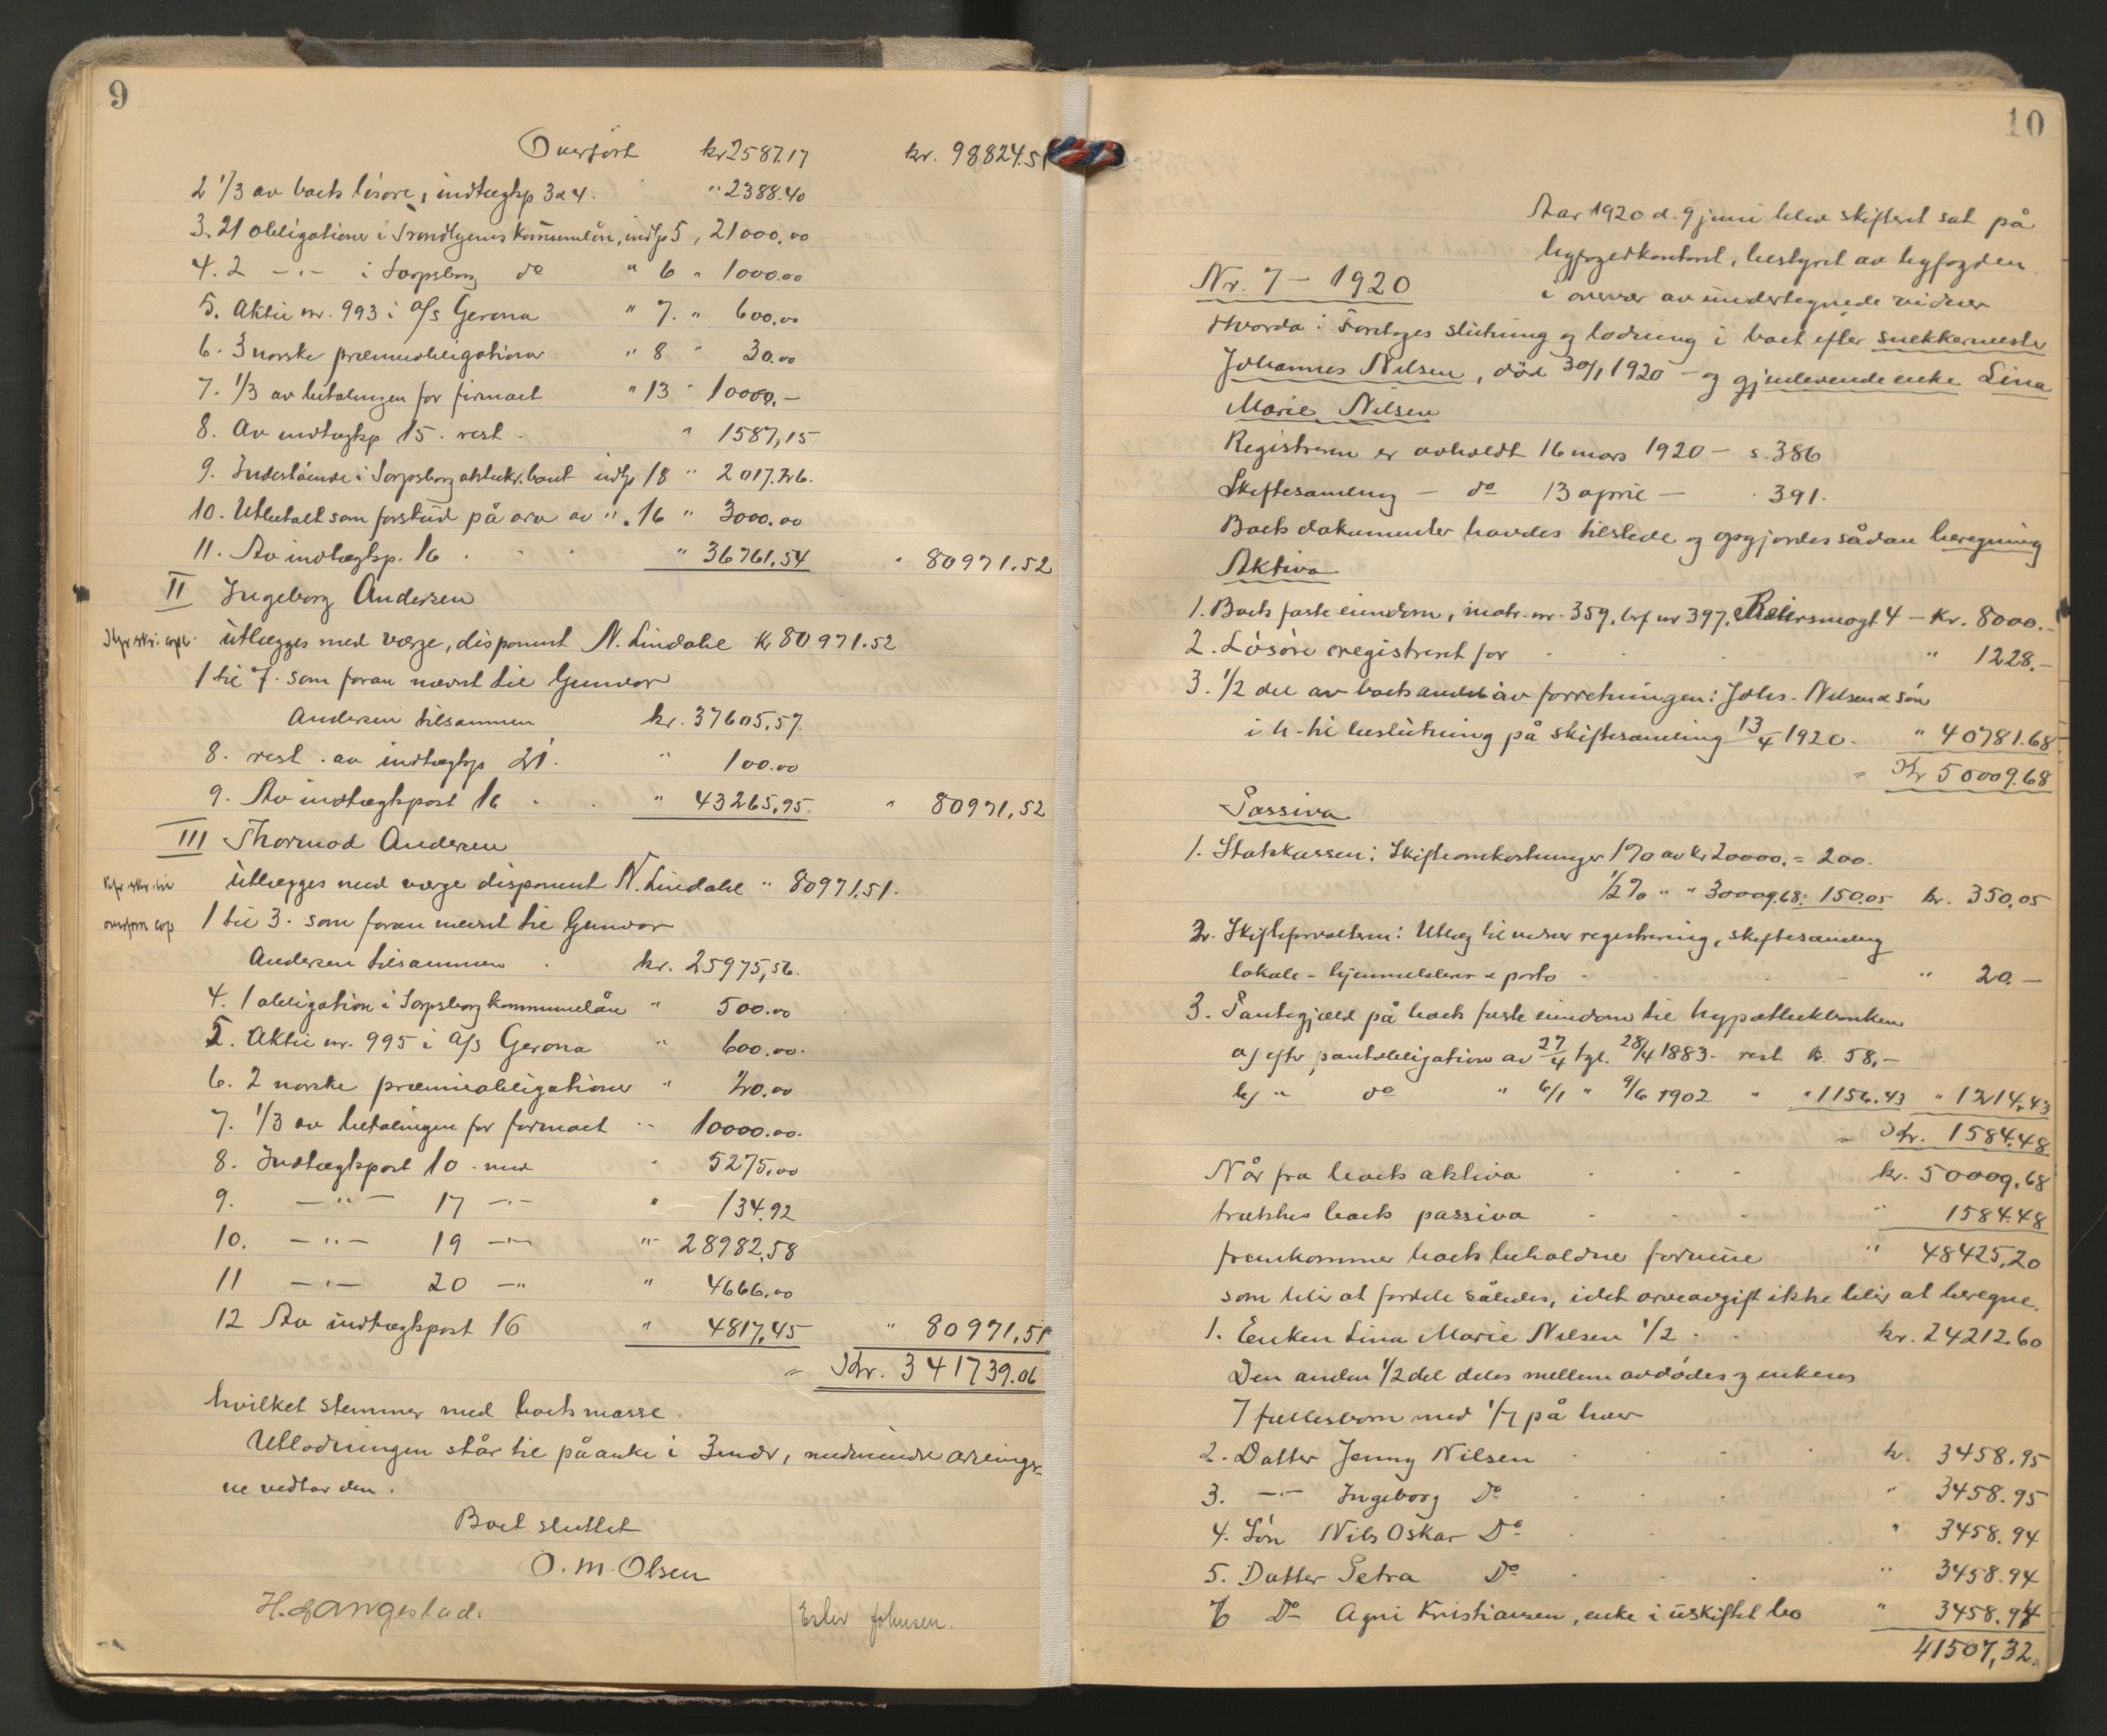 9
Overført kr 2587.17 kr. 98824.51
2 1/3 av boets løsøre, indtægtsp 3 & 4. " 2388.40
3. 21 obligationer i Trondhjems kommunelån, indtp 5, 21000.00
4. 2 -"- i Sarpsborg do " 6 " 1000.00
5. Aktie nr. 993 i A/S Gerona " 7. " 600.00
6. 3 norske præmieobligationer " 8 " 30.00
7. 1/3 av betalingen for firmaet " 13 " 10000.-
8. Av indtægtsp 15. rest. " 1587,15
9. Indestående i Sarpsborg aktiekr.bank indtp 18 " 2017.26.
10. Utbetalt som forskud på arv av ". 16 " 3000.00
11. Av indtægtsp. 16 . . . " 36761,54 " 80971.52
II Ingeborg Andersen
utlægges med værge, disponent N. Lindahl Kr 80971.52
1 til 7. som foran nævnt til Gunvor
Andersen tilsammen kr. 37605,57.
8. rest . av indtægtsp 21. " 100.00
9. Av indtægtspost 16 . . " 43265,95. " 80971,52
III Thormod Andersen
Utlægges med værge disponent N. Lindahl " 80971.51.
1 til 3. som foran nævnt til Gunvor
Andersen tilsammen . kr. 25975,56.
4. 1 obligation i Sarpsborg kommunelån " 500.00
5. Aktie nr. 995 i A/S Gerona " 600.00.
6. 2 norske præmieobligationer " 20.00
7. 1/3 av betalingen for firmaet " 10000.00.
8. Indtægtspost 10. med " 5275,00
9. -"- 17 -"- " 134.92
10. -"- 19 -"- " 28982,58
11 -"- 20 -"- " 4666.00
12 Av indtægtspost 16 " 4817,45 " 80971,51
= Kr. 341739.06
hvilket stemmer med boets masse.
Utlodningen står til påanke i 3 mdr, medmindre arvinger-
ne vedtar den.
Boet sluttet
O. M. Olsen
H. Langestad.
Ester Johnsen.
10
Aar 1920 d. 9 juni blev skifteret sat på
byfogedkontoret, bestyret av byfogden
Nr. 7 - 1920
i overvær av undertegnede vidner
Hvorda: Foretoges slutning og lodning i boet efter snekkermester
Johannes Nilsen, død 30/1 1920 - og gjenlevende enke Lina
Marie Nilsen
Registrering er avholdt 16 mars 1920 - s. 386
Skiftesamling - do 13 april - . 391.
Boets dokumenter havdes tilstede og opgjordes sådan beregning
Aktiva
1. Boets faste eiendom, matr. nr. 359, brf nr 397, 4 - Kr. 8000.-
2. Løsøre registreret for . . . " 1228.-
3. 1/2 del av boets andel av forretningen: Johs. Nilsen & Søn
i h. til beslutning på skiftesamling 13/4 1920. " 40781.68
= Kr 50009.68
Passiva
1. Statskassen: Skifteomkostninger 1% av kr 20000. = 200.
1/2 % " " 30009.68: 150.05 kr. 350,05
2. Skifteforvalteren: Utlæg til vidner registrering, skiftesamling
lokale - hjemmelsbrev & porto . . . " 20.-
3. Pantegjæld på boets faste eiendom til hypothekbanken
a/ efter pantobligation av 27/4 tgl. 28/4 1883 - rest kr. 58,-
b/ " do " 6/1 " 9/6 1902 " " 1156.43 " 1214,43
= Kr. 1584.48
Når fra boets aktiva . . . kr. 50009,68
trækkes boets passiva . . . " 1584.48
fremkommer boets beholdne formue " 48425,20
som blir at fordele således, idet arveavgift ikke blir at beregne.
1. Enken Lina Marie Nilsen 1/2 . . kr. 24212.60
Den anden 1/2 del deles mellem avdødes og enkens
7 fællesbørn med 1/7 på hver
2. Datter Jenny Nilsen . . . kr. 3458.95
3. -"- Ingeborg Do . . . " 3458.95
4. Søn Nils Oskar Do . . . " 3458.94
5. Datter Petra Do . . . " 3458.94
6 Do Agni Kristiansen, enke i uskiftet bo " 3458.94
41507,32.